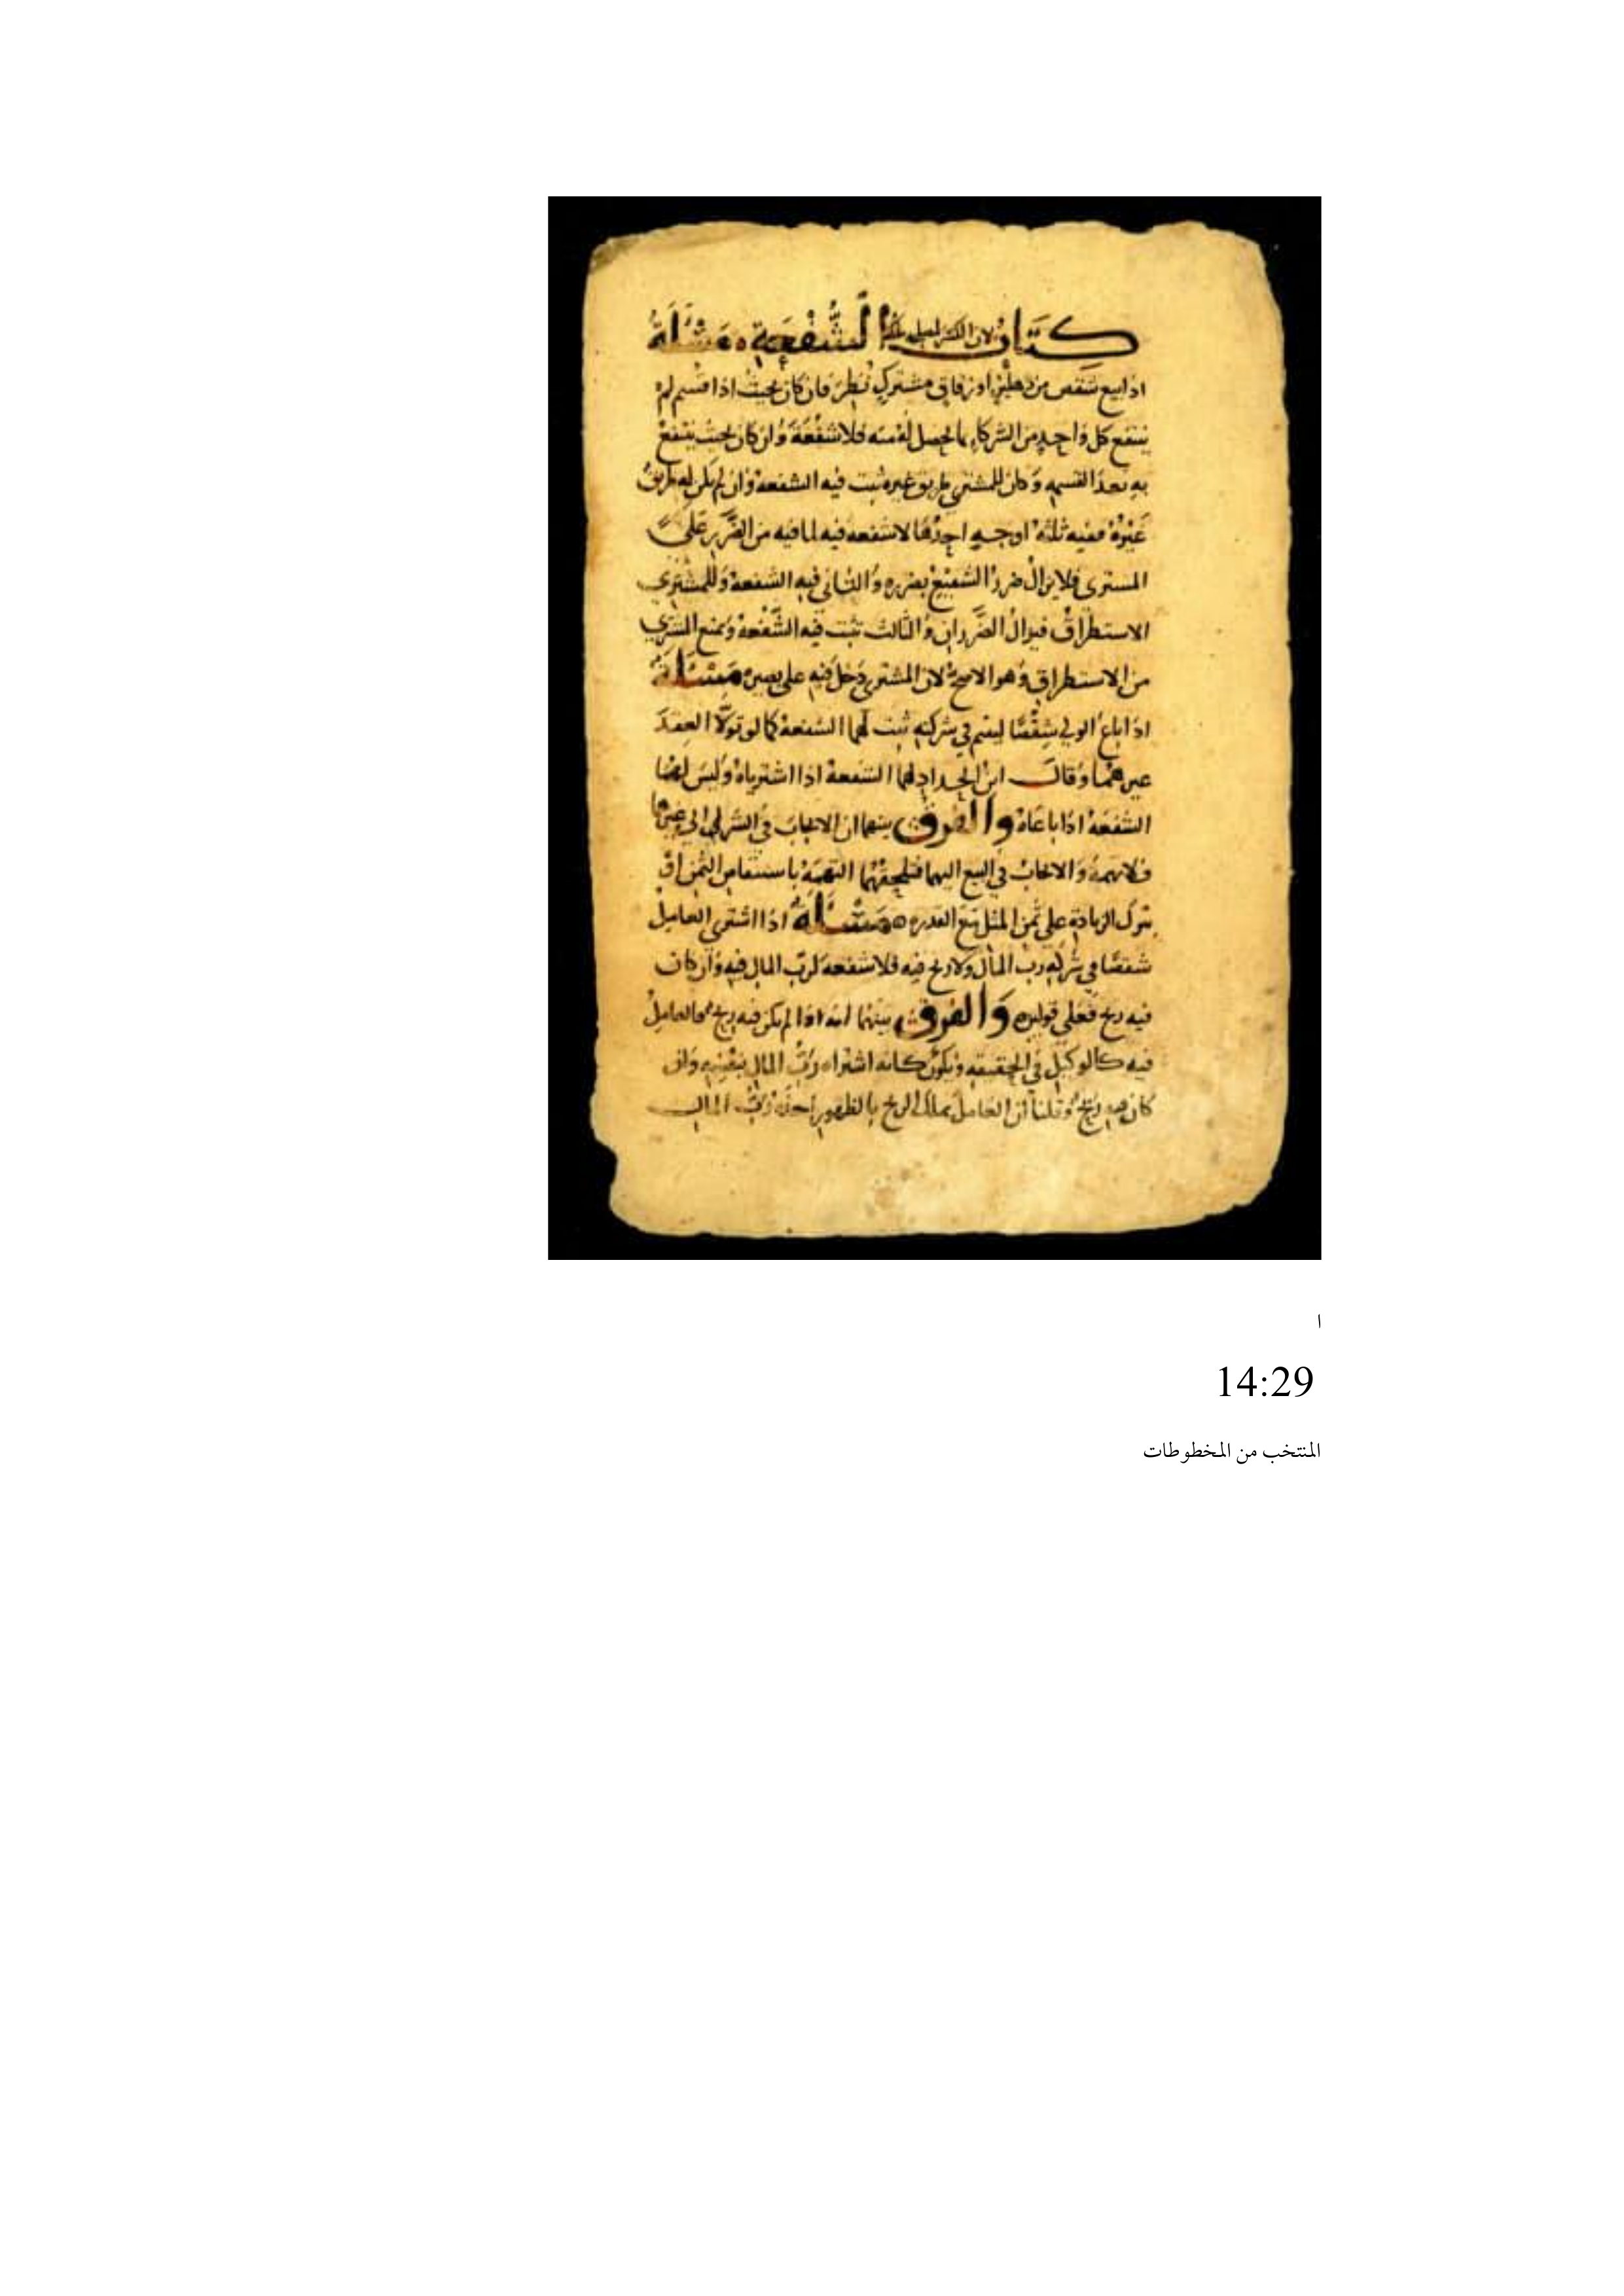 كتاب الشفعة مسألة
اذا بيع شقص من دهليز او زقاق مشترك نُظِرَ فان كان بحيث اذا قسم لم
ينتفع كل واحد من الشركاء بما يحصل له منه فلا شفعة وان كان بحيث ينتفع
به بعد القسمه وكان للمشتري طريق غيره ثبت فيه الشفعة وان لم يكن له طريق
غيره ففيه ثلثة اوجه احدها لا شفعه فيه لما فيه من الضرر على
المشترى فلا يزال ضرر الشفيع بضرره والثاني فيه الشفعة وللمشتري
الاستطراق فيزال الضرران والثالث تثبت فيه الشفعة ويمنع المشتري
من الاستطراق وهو الاصح لان المشتري دخل فيه على بصيره مسألة
اذا باع الولي شقصًا ليتيم في شركته ثبت لهما الشفعة كما لو تولا العقد
عن هما وقال ابن الحداد لهما الشفعة اذا اشترياه وليس لهما
الشفعة اذا باعاه والفرق بينهما ان الايجاب في الشرى الى غيرهما
فلا تهمة والايجاب في البيع اليهما فتلحقهما التهمة باستنقاص الثمن او
بترك الزيادة على ثمن المثل مع القدره مسألة اذا اشترى العامل
شقصًا في شركه رب المال ولا ربح فيه فلا شفعة لرب المال فيه وان كان
فيه ربح فعلى قولين والفرق بينهما انه اذا لم يكن فيه ربح فالعامل
فيه كالوكيل في الحقيقه ويكون كانه اشتراه رب المال بنفسه وان
كان فيه ربح وقلنا ان العامل يملك الربح بالظهور اخذ رب المال
ا
14:29
المنتخب من المخطوطات